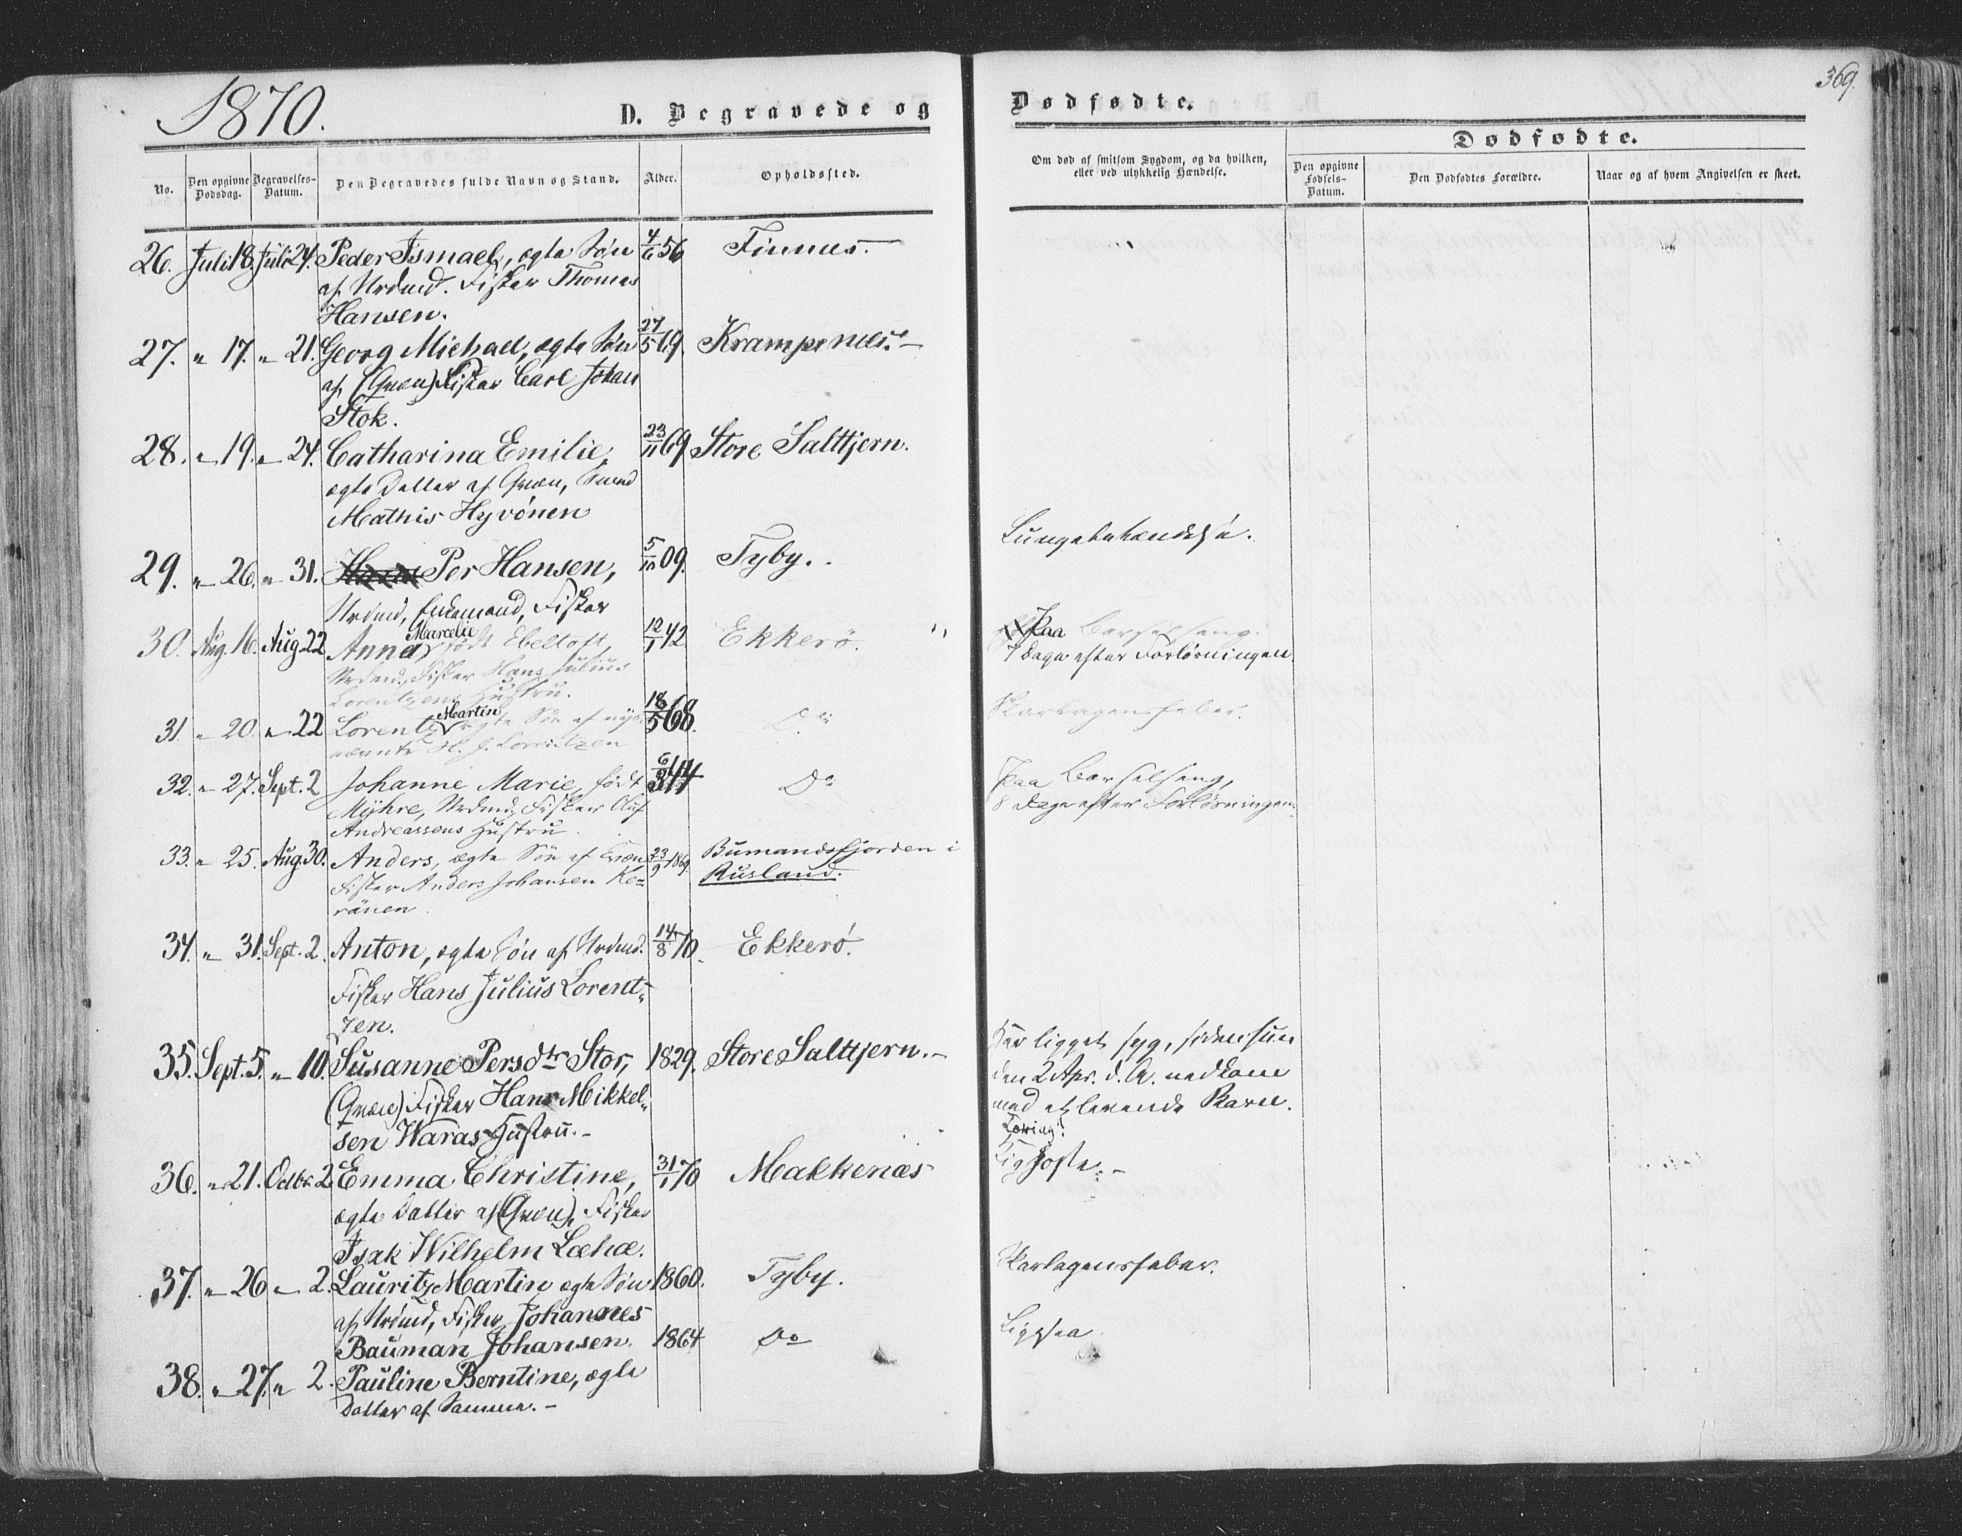 1870.
D. Begravede og
Dødfødte.
369.
Dødfødte.
No.
Den opgivne Dødsdag.
Begravelses-Datum.
Den Begravedes fulde Navn og Stand.
Alder.
Opholdssted.
Om død af smitsom Sygdom, og da hvilken,
eller ved ulykkelig Hændelse.
Den opgivne Fødsels-Datum.
Den Dødfødtes Forældre.
Naar og af hvem Angivelsen er skeet.
26. Juli 18. Juli 24. Peder Ismael, ægte Søn 4/6 56 Finnes.—
af Nrdmd. Fisker Thomas
Hansen.
27. " 17. " 21. Georg Michael, ægte Søn 27/5 69 Krampenæs.—
af (Qvæn) Fisker Carl Johan
Stok.
28. " 19. " 24. Catharina Emilie, 23/11 69 Store Salttjern.
ægte Datter af Qvæn, Smed
Mathis Hyvönen
29. " 26. " 31. Per Hansen, 5/10 09. Tyby. Lungebetændelse.
Nrdmd, Enkemand, Fisker
30. Aug. 16. Aug 22 Anna Marcelie født Ebeltoft, 12/1 42 Ekkerø. " Paa Barselseng.
Nrdmd, Fisker Hans Julius 7 Dage efter Forløsningen.
Lorentzens Hustru.
31. " 20. " 22 Lorentz Martin ægte Søn af nys 18/5 68. Do Skarlagensfeber.
nævnte H. J. Lorentzen
32. " 27. Sept. 2 Johanne Marie, født 6/3 44 Do Paa Barselseng,
Myhre, Nrdmd, Fisker Oluf 8 Dage efter Forløsningen.
Andreassens Hustru.
33. " 25. Aug. 30. Anders, ægte Søn af Qvæn 23/9 1869. Bumandsfjorden i
Fisker Anders Johansen Ke= Rusland.
ränen.
34. " 31. Sept. 2. Anton, ægte Søn af Nrdmd. 14/8 70. Ekkerø.
Fisker Hans Julius Lorent=
zen.
35. Sept. 5. " 10. Susanne Persdtr Stor, 1829. Store Salttjern.— Har ligget syg, siden hun
(Qvæn) Fisker Hans Mikkel= den 2 Apr. d. A. nedkom
sen Waras Hustru.— med et levende Barn.
36. " 21. Octbr. 2. Emma Christine, 31/1 70 Makkenæs Kighoste.—
ægte Datter af (Qvæn), Fisker
Isak Wilhelm Læhæ.
37. " 26 " 2. Lauritz Martin ægte Søn 1860. Tyby. Skarlagensfeber.
af Nrdmd, Fisker Johannes
Bauman Johansen.
38. " 27. " 2. Pauline Berntine, ægte 1864 Do Ligesaa
Datter af Samme.—